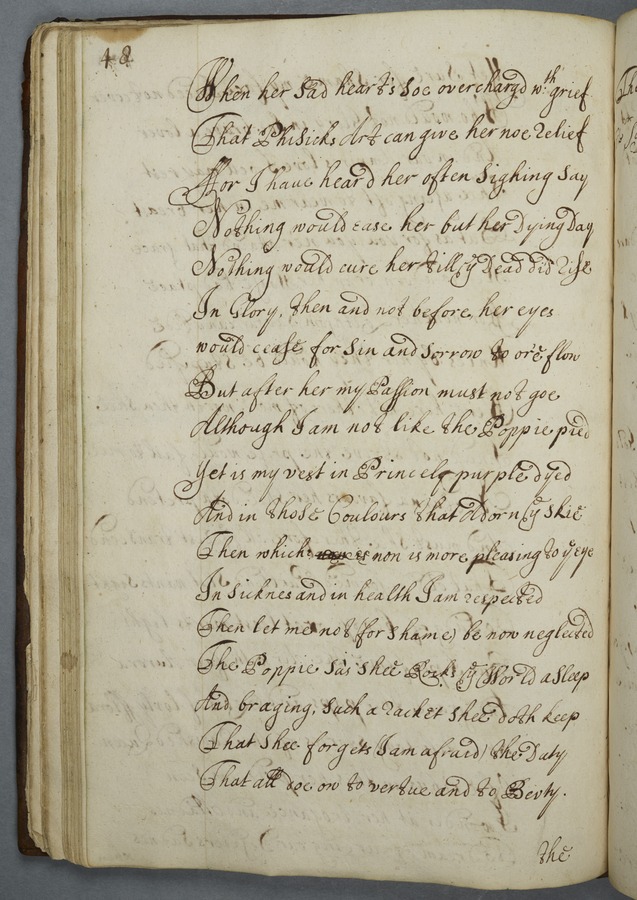 48
When her sad heart's soe overchargd wth grief
That Phisicks Art can give her noe relief
For I have heard her often sighing say
Nothing would ease her but her Dying Day
Nothing would cure her till ye Dead did rise
In Glory, then and not before, her eyes
would cease for sin and sorrow to o're flow
But after her my Passion must not goe
Although I am not like the Poppie pied
Yet is my vest in Princely purple dyed
And in those Coulours that Adorn ye skie
Then which non is more pleasing to ye eye
In sicknes and in health I am respected
Then let me not (for shame) be now neglected
The Poppie sais shee Rocks ye World a sleep
And braging, such a racket shee doth keep
That shee forgets (I am afraid) the Duty
That all doe ow to vertue and to Bevty.
the